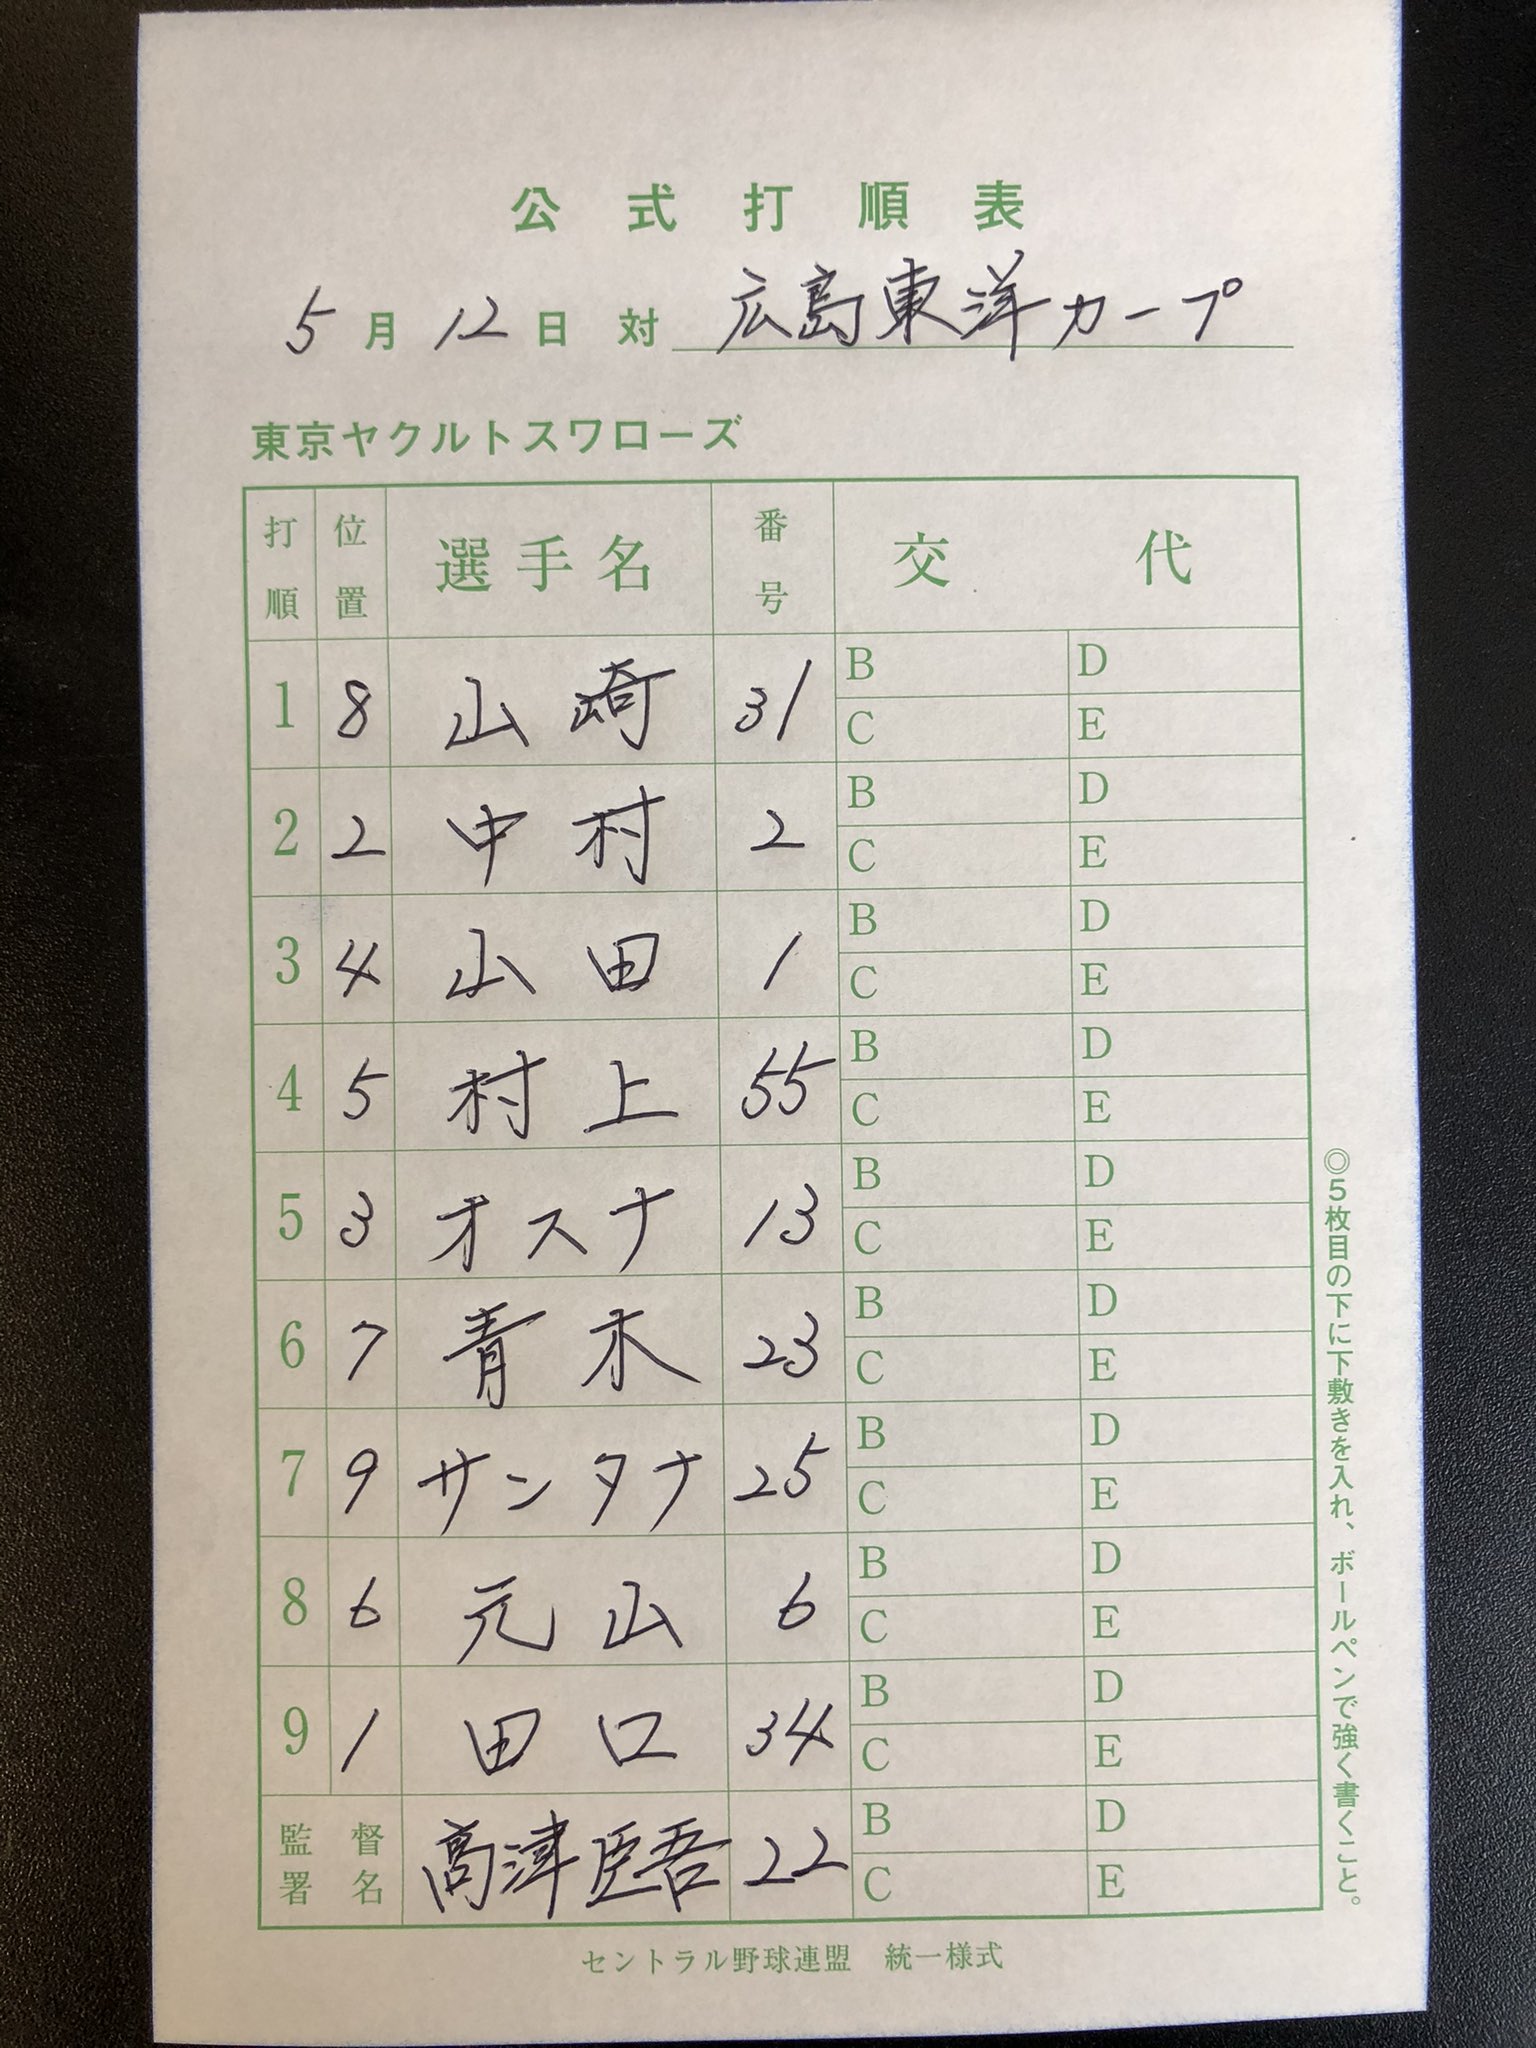 公式打順表
5月12日 対 広島東洋カープ
東京ヤクルトスワローズ
打順 位置 選手名 番号 交代
1 8 山崎 31 B D
C E
2 2 中村 2 B D
C E
3 4 山田 1 B D
C E
4 5 村上 55 B D
C E
5 3 オスナ 13 B D
C E
6 7 青木 23 B D
C E
7 9 サンタナ 25 B D
C E
8 6 元山 6 B D
C E
9 1 田口 34 B D
C E
監督署名 高津臣吾 22 B D
C E
◎5枚目の下に下敷きを入れ、ボールペンで強く書くこと。
セントラル野球連盟 統一様式